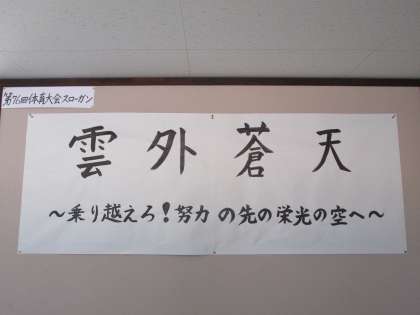 第76回体育大会スローガン
雲外蒼天
～乗り越えろ！努力の先の栄光の空へ～